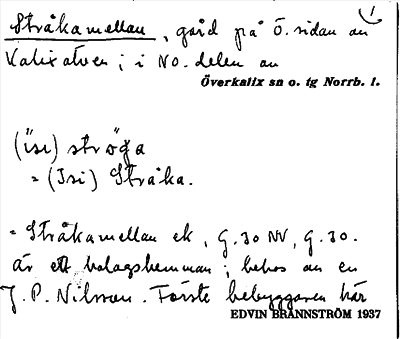 Stråkamellan, gård på Ö. sidan av
Kalixälven; i NO. delen av
Överkalix sn o. tg Norrb. l.
(isi) ströga
= (Isi) Stråka.
= Stråkamellan ek, G. 30 NV, G. 30.
är ett bolagshemman; bebos av en
J. P. Nilsson. Förste bebyggaren här
EDVIN BRÄNNSTRÖM 1937